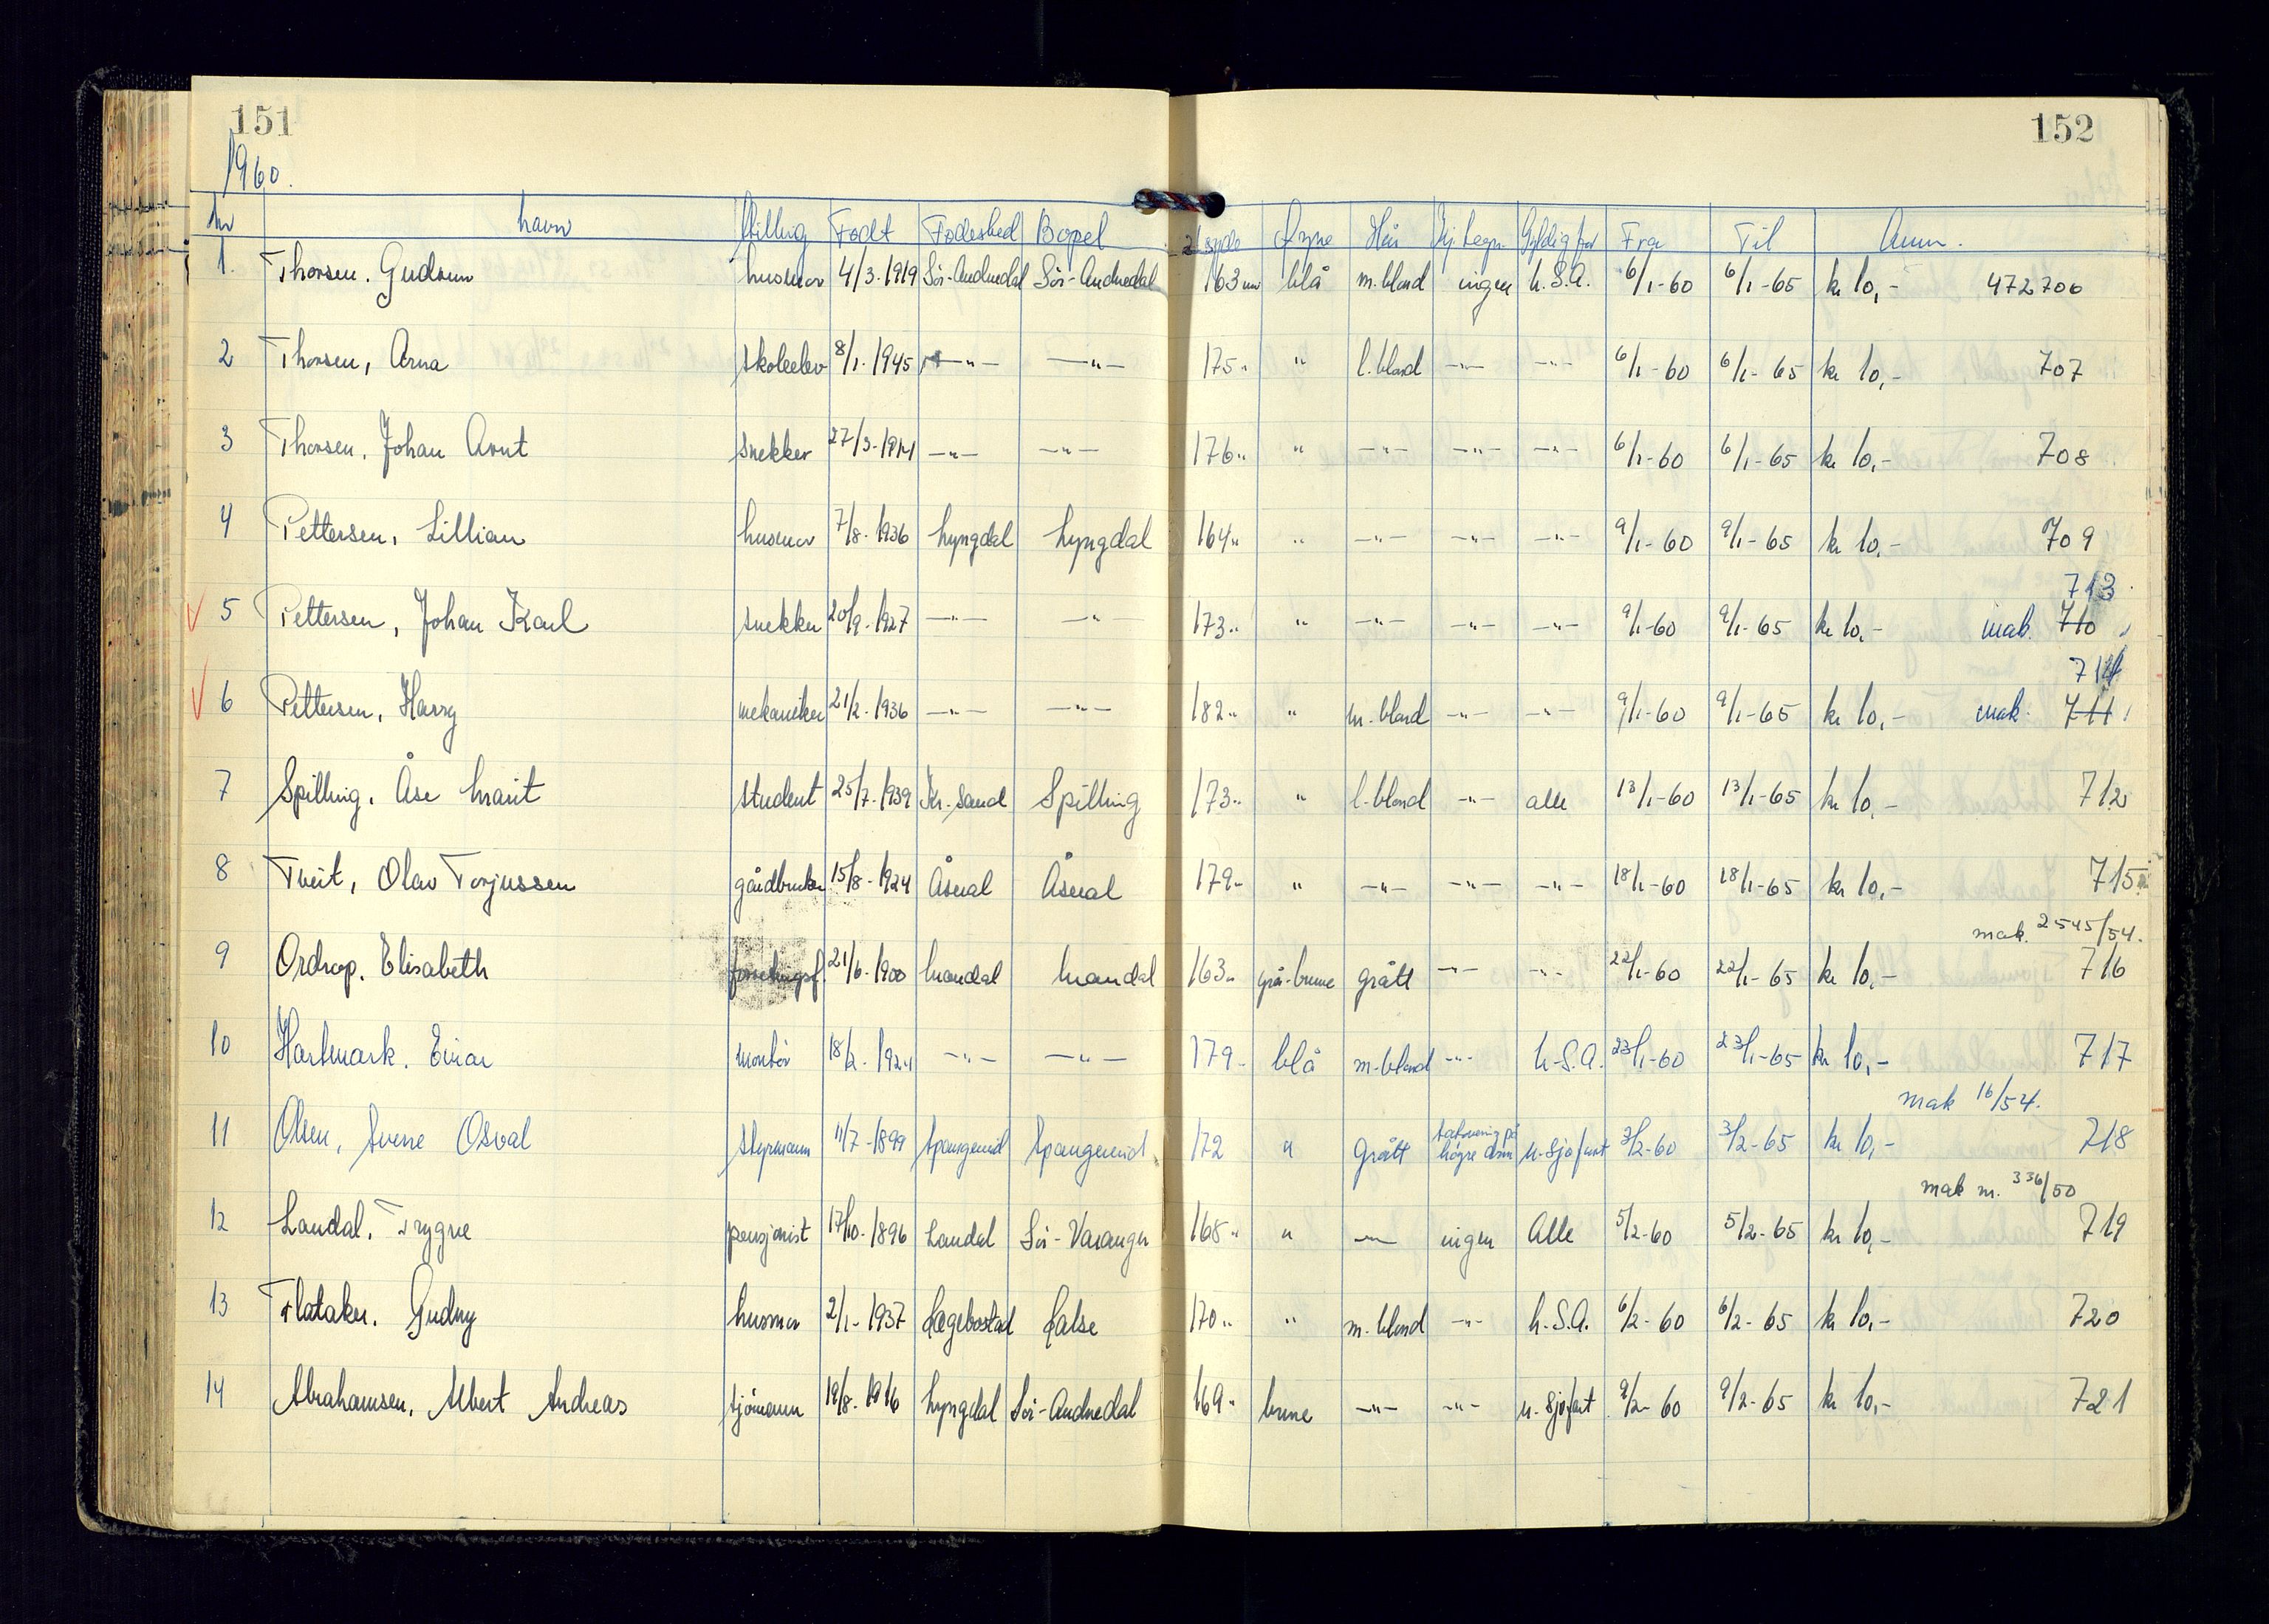 151
152
1960.
Nr Navn Stilling Født Fødested Bopel Høyde Øyne Hår Sj. tegn. Gyldig for Fra Til Anm.
1. Thorsen. Gudrun husmor 4/3-1919 Sör-Audnedal Sör-Audnedal 163 cm blå m.blond ingen U.S.A. 6/1-60 6/1-65 kr 10,- 472706
2 Thorsen, Arna skoleelev 8/1-1945 —"— —"— 175" " l.blond —"— —"— 6/1-60 6/1-65 kr 10,- 707
3 Thorsen, Johan Arnt snekker 27/3-1914 —"— —"— 176" " —"— —"— —"— 6/1-60 6/1-65 kr 10,- 708
4 Pettersen, Lillian husmor 7/8-1936 Lyngdal Lyngdal 164" " —"— —"— —"— 9/1-60 9/1-65 kr 10,- 709
713
5 Pettersen, Johan Karl snekker 20/9-1927 —"— —"— 173" " —"— —"— —"— 9/1-60 9/1-65 kr 10,- mak. 710
714
6 Pettersen, Harry mekaniker 21/2-1936 —"— —"— 182" " m.blond —"— —"— 9/1-60 9/1-65 kr 10,- mak. 711
7 Spilling, Åse Marit student 25/7-1939 Kr.sand Spilling 173" " l.blond —"— alle 13/1-60 13/1-65 kr 10,- 712
8 Tveit, Olav Torjussen gårdbruker 15/8-1924 Åseral Åseral 179" " —"— —"— —"— 18/1-60 18/1-65 kr 10,- 715
mak. 2545/54.
9 Ordrop, Elisabeth 21/6-1900 Mandal Mandal 163" grå-brune grått —"— —"— 22/1-60 22/1-65 kr 10,- 716
10 Hartmark. Einar montör 18/2-1924 —"— —"— 179" blå m.blond —"— U.S.A. 23/1-60 23/1-65 kr 10,- 717
mak 16/54.
11 Olsen, Sverre Osval styrmann 11/7-1899 Spangereid Spangereid 172 " grått tatovering på höyre arm u-sjöfart 3/2-60 3/2-65 kr 10,- 718
mak nr. 336/50
12 Laudal, Trygve pensjonist 17/10-1896 Laudal Sör-Varanger 168" " —"— ingen Alle 5/2-60 5/2-65 kr 10,- 719
13 Flataker. Gudny husmor 2/1-1937 Hægebostad Halse 170" " m.blond —"— U.S.A. 6/2-60 6/2-65 kr 10,- 720
14 Abrahamsen, Albert Andreas sjömann 19/8-1916 Lyngdal Sör-Audnedal 169" brune —"— —"— u-sjöfart 9/2-60 9/2-65 kr 10,- 721